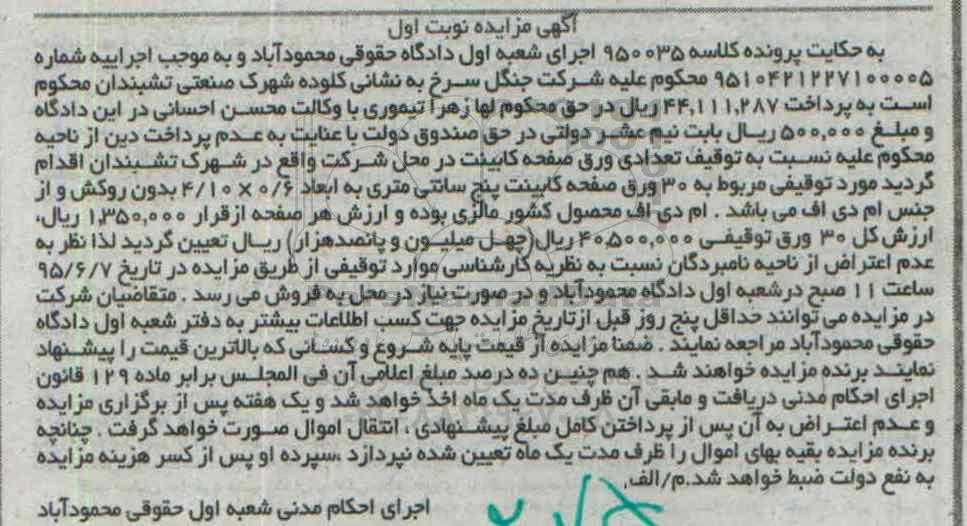 آگهی مزایده نوبت اول
به حکایت پرونده کلاسه ۹۵۰۰۳۵ اجرای شعبه اول دادگاه حقوقی محمودآباد و به موجب اجراییه شماره
۹۵۱۰۴۲۱۲۲۷۱۰۰۰۰۵ محکوم علیه شرکت جنگل سرخ به نشانی کلوده شهرک صنعتی تشبندان محکوم
است به پرداخت ۴۴,۱۱۱,۲۸۷ ریال در حق محکوم لها زهرا تیموری با وکالت محسن احسانی در این دادگاه
و مبلغ ۵۰۰,۰۰۰ ریال بابت نیم عشر دولتی در حق صندوق دولت با عنایت به عدم پرداخت دین از ناحیه
محکوم علیه نسبت به توقیف تعدادی ورق صفحه کابینت در محل شرکت واقع در شهرک تشبندان اقدام
گردید مورد توقیفی مربوط به ۳۰ ورق صفحه کابینت پنج سانتی متری به ابعاد ۰/۶ × ۴/۱۰ بدون روکش و از
جنس ام دی اف می باشد . ام دی اف محصول کشور مالزی بوده و ارزش هر صفحه از قرار ۱,۳۵۰,۰۰۰ ریال،
ارزش کل ۳۰ ورق توقیفی ۴۰,۵۰۰,۰۰۰ ریال (چهل میلیون و پانصدهزار) ریال تعیین گردید لذا نظر به
عدم اعتراض از ناحیه نامبردگان نسبت به نظریه کارشناسی موارد توقیفی از طریق مزایده در تاریخ ۹۵/۶/۷
ساعت ۱۱ صبح در شعبه اول دادگاه محمودآباد و در صورت نیاز در محل به فروش می رسد . متقاضیان شرکت
در مزایده می توانند حداقل پنج روز قبل از تاریخ مزایده جهت کسب اطلاعات بیشتر به دفتر شعبه اول دادگاه
حقوقی محمودآباد مراجعه نمایند . ضمنا مزایده از قیمت پایه شروع و کسانی که بالاترین قیمت را پیشنهاد
نمایند برنده مزایده خواهند شد . هم چنین ده درصد مبلغ اعلامی آن فی المجلس برابر ماده ۱۲۹ قانون
اجرای احکام مدنی دریافت و مابقی آن ظرف مدت یک ماه اخذ خواهد شد و یک هفته پس از برگزاری مزایده
و عدم اعتراض به آن پس از پرداختن کامل مبلغ پیشنهادی ، انتقال اموال صورت خواهد گرفت . چنانچه
برنده مزایده بقیه بهای اموال را ظرف مدت یک ماه تعیین شده نپردازد ،سپرده او پس از کسر هزینه مزایده
به نفع دولت ضبط خواهد شد.م/الف,
اجرای احکام مدنی شعبه اول حقوقی محمودآباد